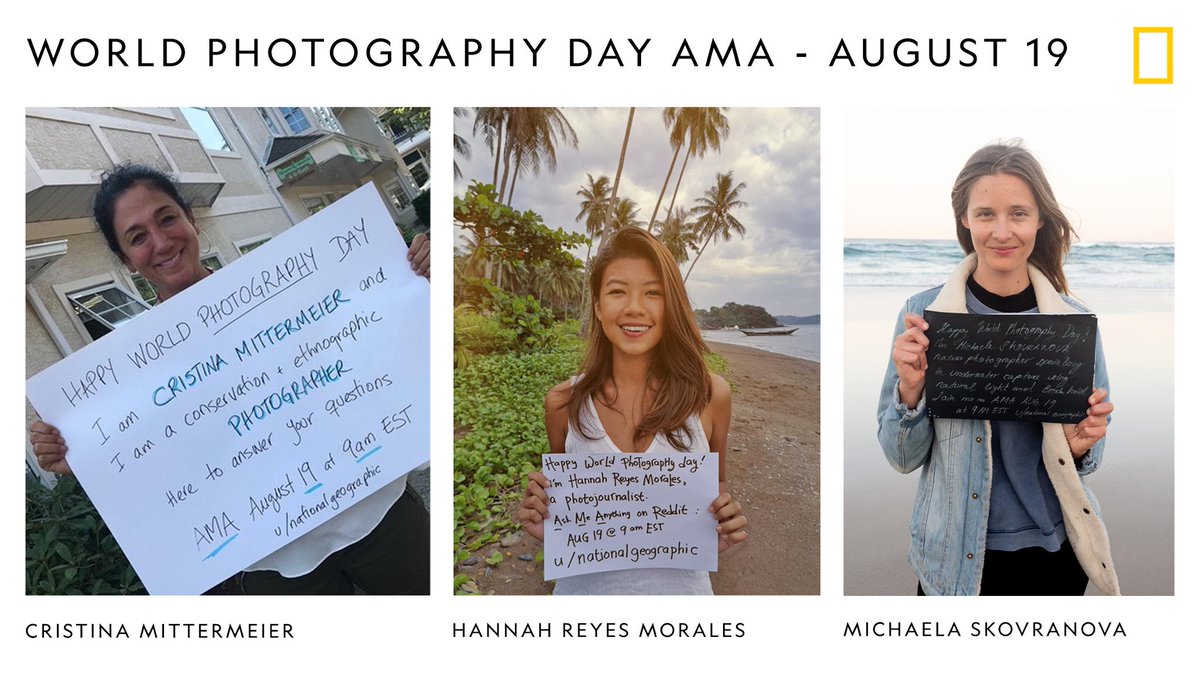 WORLD PHOTOGRAPHY DAY AMA - AUGUST 19
HAPPY WORLD PHOTOGRAPHY DAY
I am CRISTINA MITTERMEIER and
I am a conservation + ethnographic
PHOTOGRAPHER
Here to answer your questions
AMA August 19 at 9am EST
u/nationalgeographic
Happy World Photography day!
I'm Hannah Reyes Morales,
a photojournalist.
Ask Me Anything on Reddit :
AUG 19 @ 9 am EST
u/nationalgeographic
Happy World Photography Day!
I'm Michaela SKOVRANOVA
nature photographer specialising
in underwater capture using
natural light and
Join me on AMA AUG 19
at 9 AM EST u/national geographic
CRISTINA MITTERMEIER
HANNAH REYES MORALES
MICHAELA SKOVRANOVA